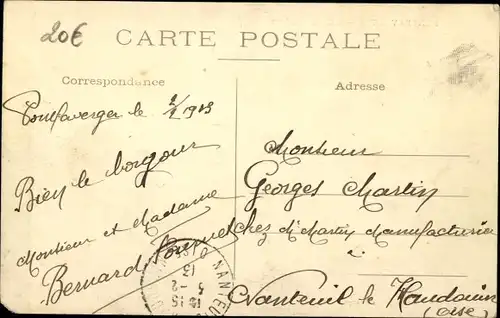 20€
CARTE POSTALE
Correspondance
Adresse
le 2/2 1913
Bien le bonjour
Monsieur et Madame
Bernard
Monsieur
Georges Martin
chez Mr Martin Manufacturier
Nanteuil le Haudouin
(Oise)
NANTEUIL
OISE
13